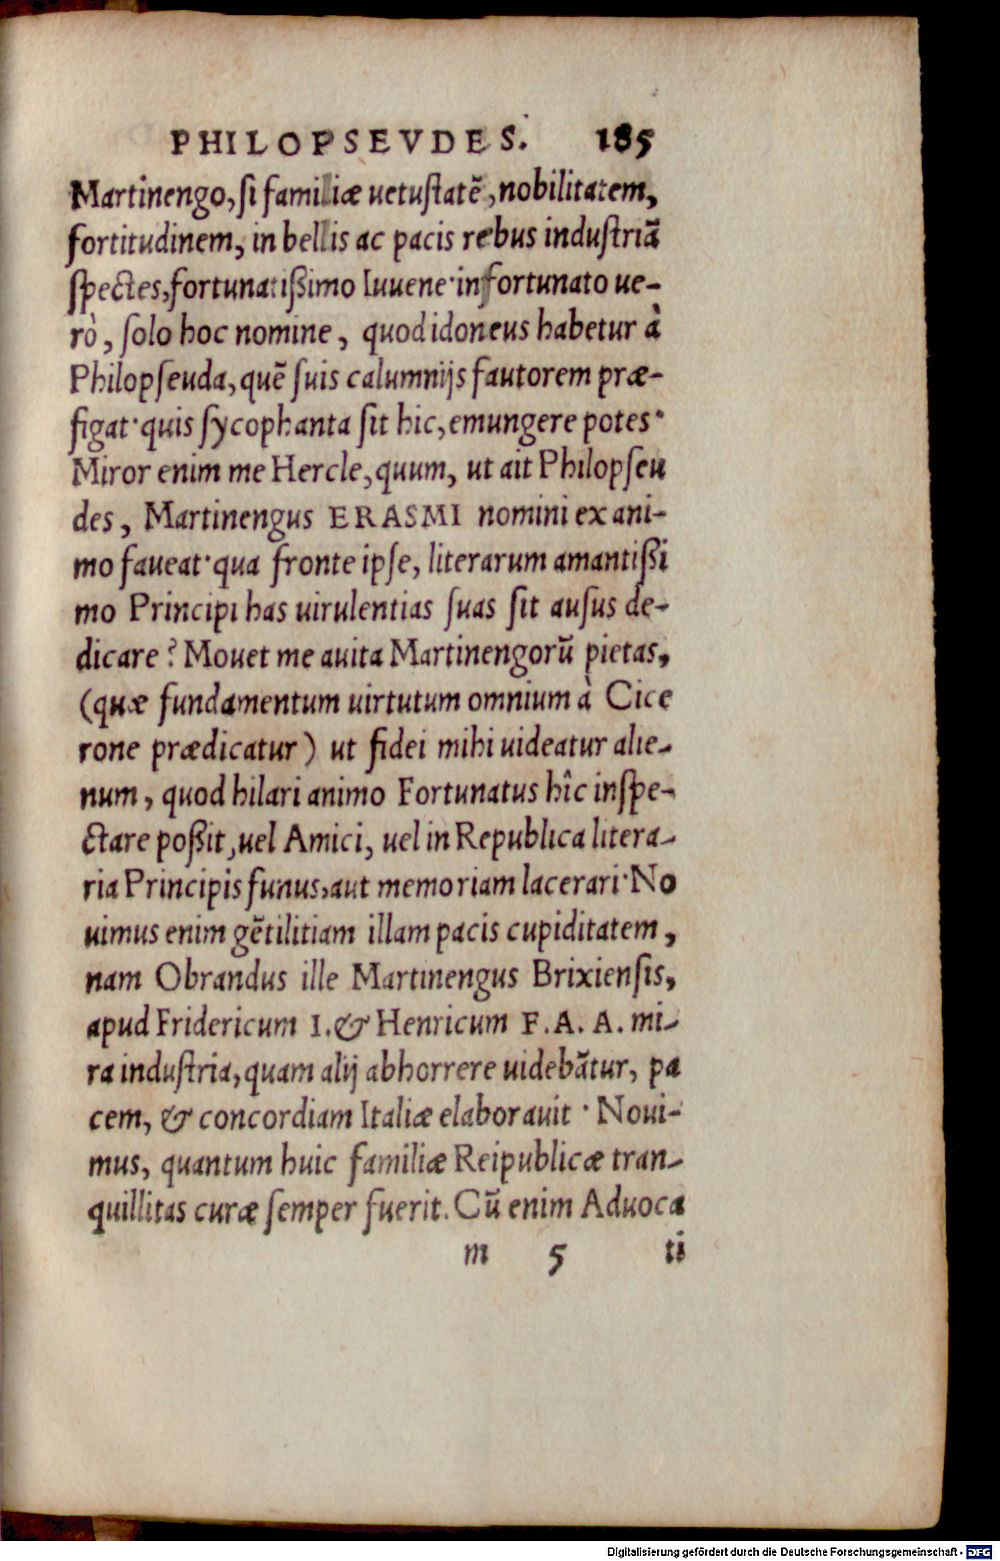 PHILOPSEVDES. 185
Martinengo, si familiæ uetustatē, nobilitatem,
fortitudinem, in bellis ac pacis rebus industriā
spectes, fortunatißimo Iuuene· infortunato ue-
rò, solo hoc nomine, quod idoneus habetur à
Philopseuda, quē suis calumnijs fautorem præ-
figat· quis sycophanta sit hic, emungere potes·
Miror enim me Hercle, quum, ut ait Philopseu
des, Martinengus ERASMI nomini ex ani-
mo faueat· qua fronte ipse, literarum amantißi
mo Principi has uirulentias suas sit ausus de-
dicare? Mouet me auita Martinengorū pietas,
(quæ fundamentum uirtutum omnium à Cice
rone prædicatur) ut fidei mihi uideatur alie-
num, quod hilari animo Fortunatus hîc inspe-
ctare poßit, uel Amici, uel in Republica litera-
ria Principis funus, aut memoriam lacerari· No
uimus enim gētilitiam illam pacis cupiditatem,
nam Obrandus ille Martinengus Brixiensis,
apud Fridericum I. & Henricum F. A. A. mi-
ra industria, quam alij abhorrere uidebātur, pa
cem, & concordiam Italiæ elaborauit · Noui-
mus, quantum huic familiæ Reipublicæ tran-
quillitas curæ semper fuerit. Cū enim Aduoca
m 5 ti
Digitalisierung gefördert durch die Deutsche Forschungsgemeinschaft - DFG